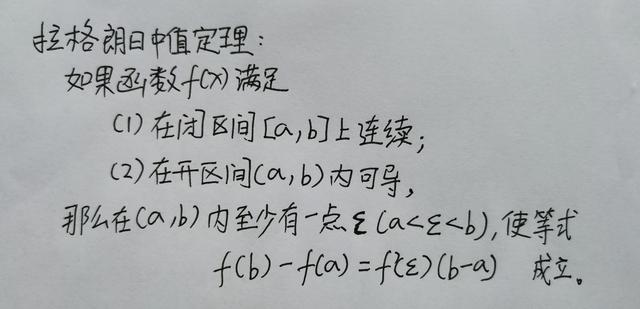 拉格朗日中值定理:
如果函数f(x)满足
(1)在闭区间[a,b]上连续;
(2)在开区间(a,b)内可导,
那么在(a,b)内至少有一点ξ(a<ξ<b),使等式
f(b)-f(a)=f'(ξ)(b-a) 成立。